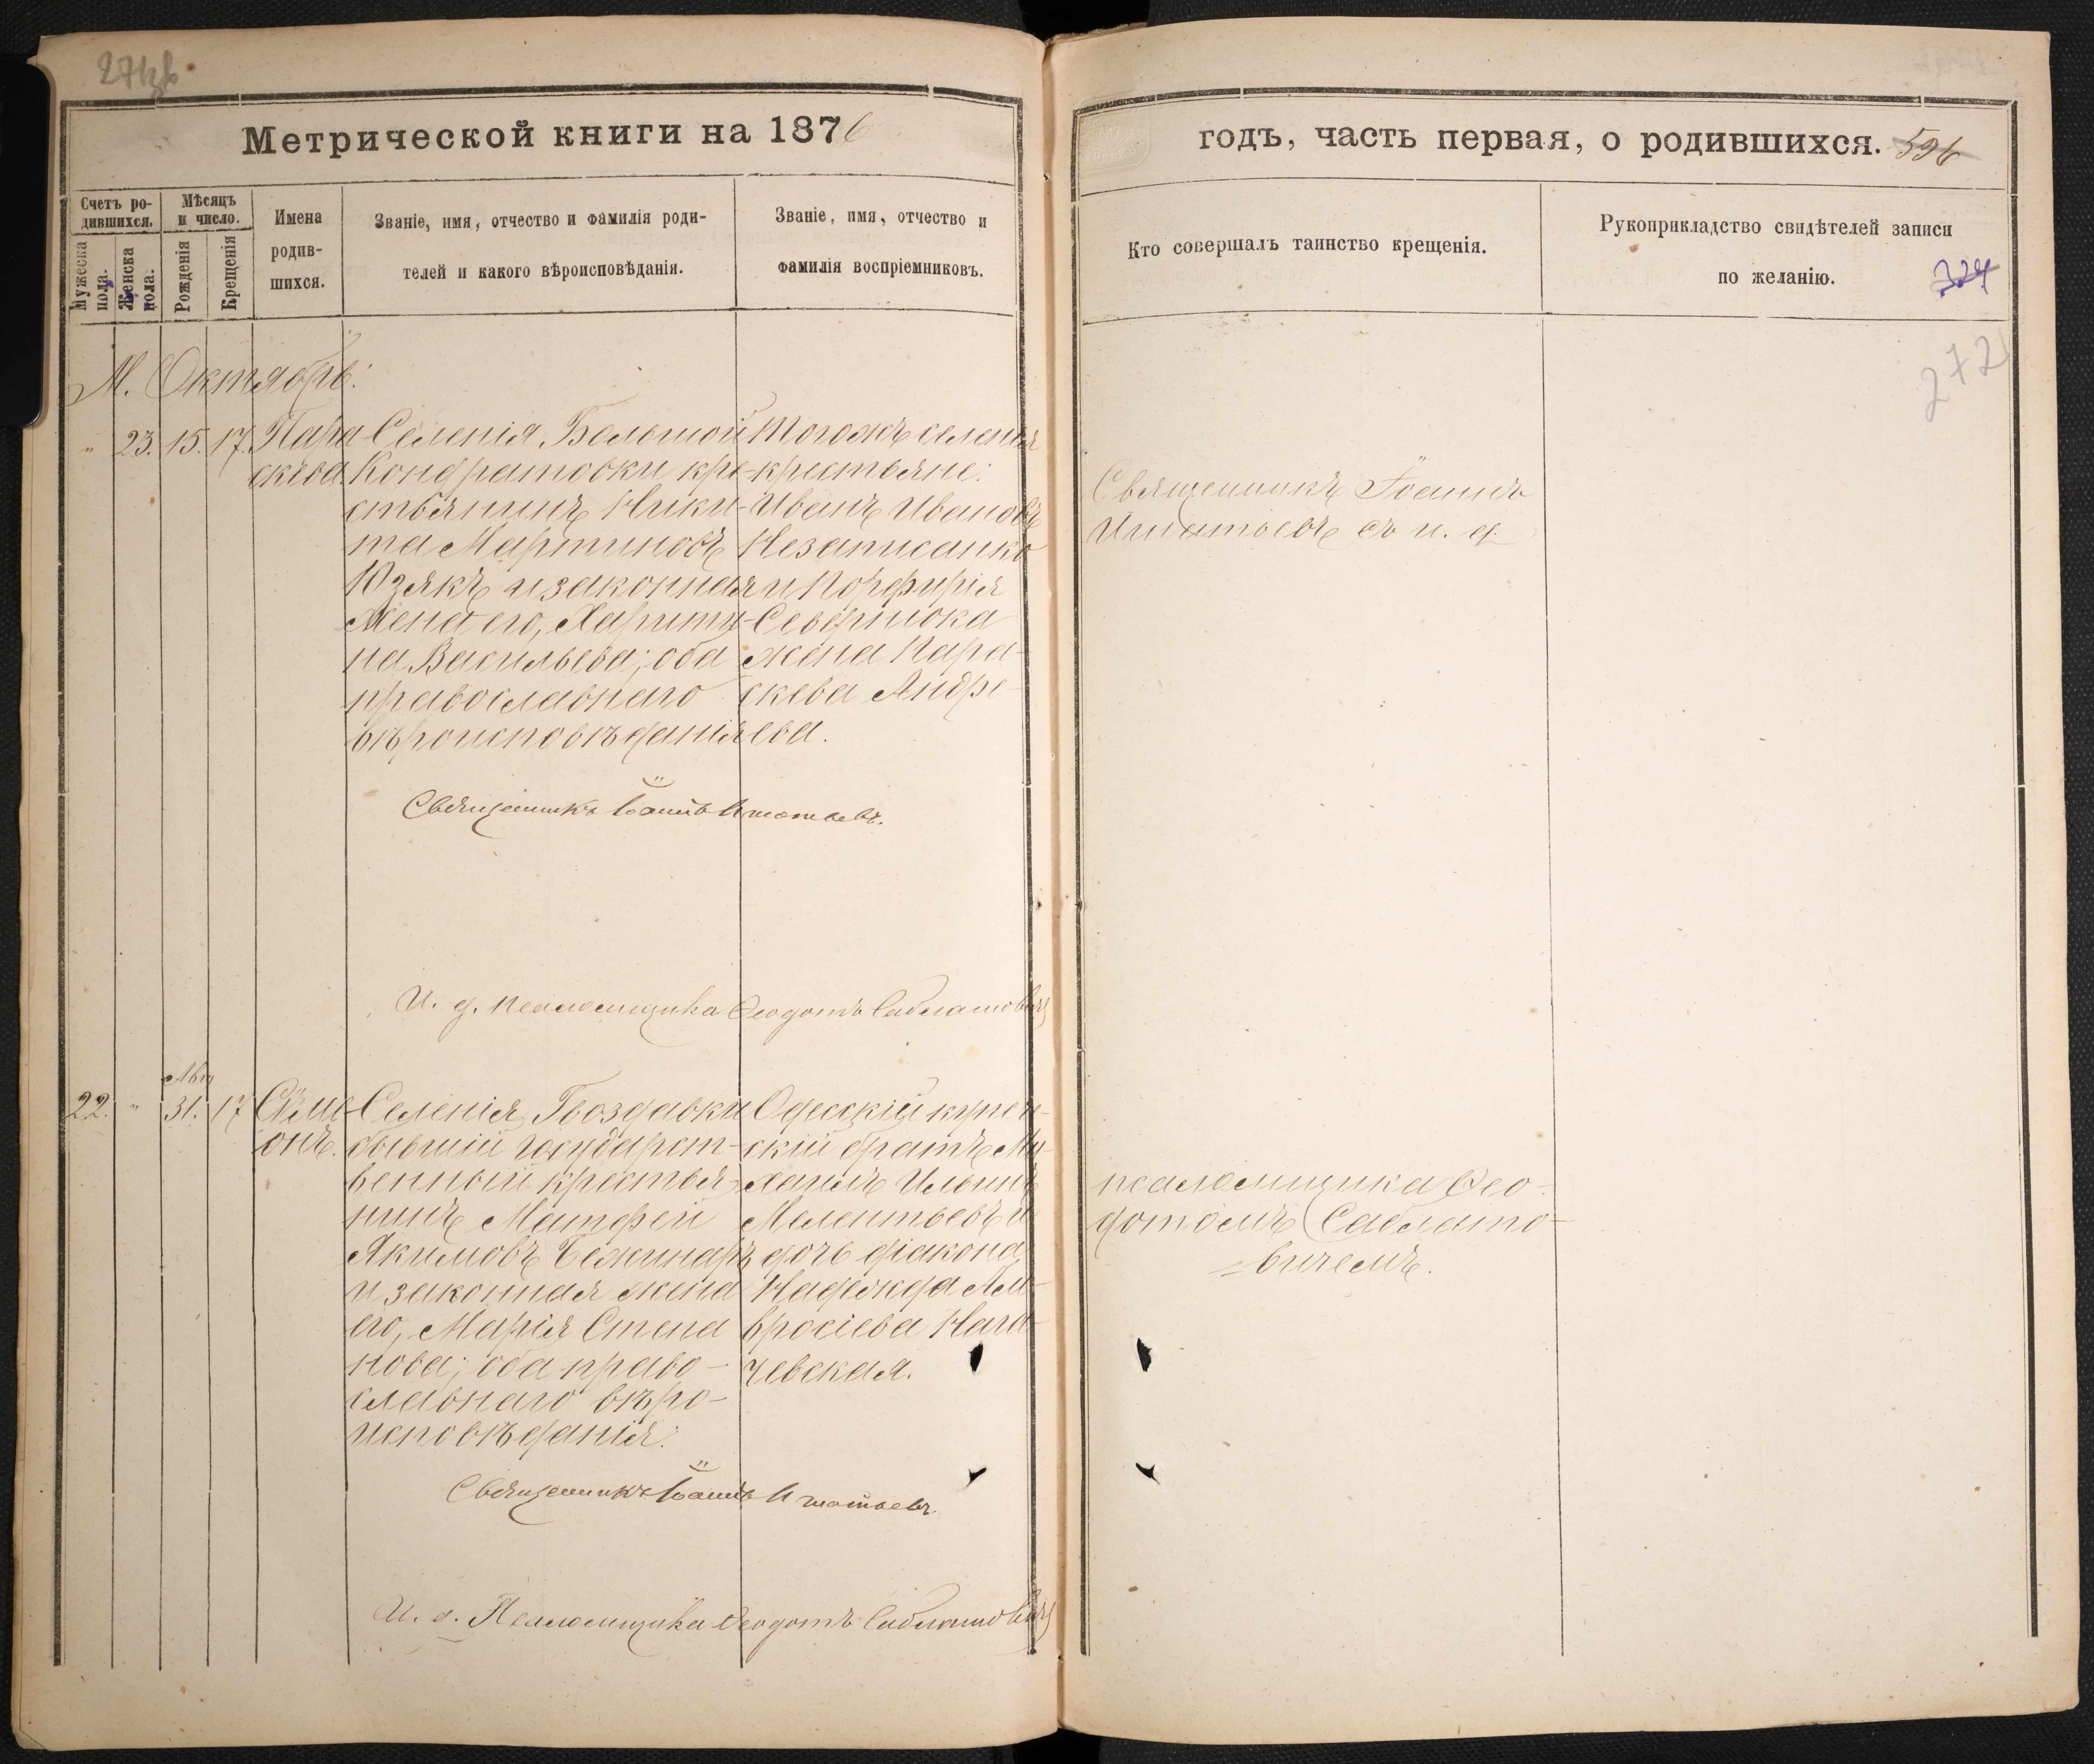 Метрической книги на 1876
годъ, часть первая, о родившихся. 596
Счетъ ро-
дившихся.
Мужеска
пола.
Женска
пола.
Мѣсяцъ
и число.
Рожденія
Крещенія
Имена
родив-
шихся.
Званіе, имя, отчество и фамилія роди-
телей и какого вѣроисповѣданія.
Званіе, имя, отчество и
фамилія воспріемниковъ.
Кто совершалъ таинство крещенія.
Рукоприкладство свидѣтелей записи
по желанію.
324
272
М. Октябрь:
" 23. 15. 17.
Пара
скева
Селенія Большой
Кондратовки кре-
стьянинъ Ники-
та Мартиновъ
Юзякъ и законная
жена его, Харити-
на Васильева; оба
православнаго
вѣроисповѣданія
Тогожъ селенія
крестьяне:
Иванъ Ивановъ
Незаписанко
и Порфирія
Севернюка
жена Пара-
скева Андре-
ева.
Священникъ Іоаннъ
Игнатьевъ съ и. д.
Священникъ Іоаннъ Игнатьевъ.
И. д. псаломщика Ѳеодотъ Саблатовичъ
22. " 31. 17
Сѵме-
онъ.
Селенія Гвоздавки
бывшій государст-
венный крестья-
нинъ Матфей
Якимовъ Бежинаръ
и законная жена
его, Марія Степа
нова; оба право-
славнаго вѣро-
исповѣданія.
Одесскій купеч-
скій братъ Ми-
хаилъ Ильинъ
Мелентьевъ и
дочь діакона
Надежда Ам-
вросіева Нага-
чевская.
псаломщика Ѳео-
дотомъ Саблато-
вичемъ.
Священникъ Іоаннъ Игнатьевъ
И. д. Псаломщика Ѳеодотъ Саблатовичъ